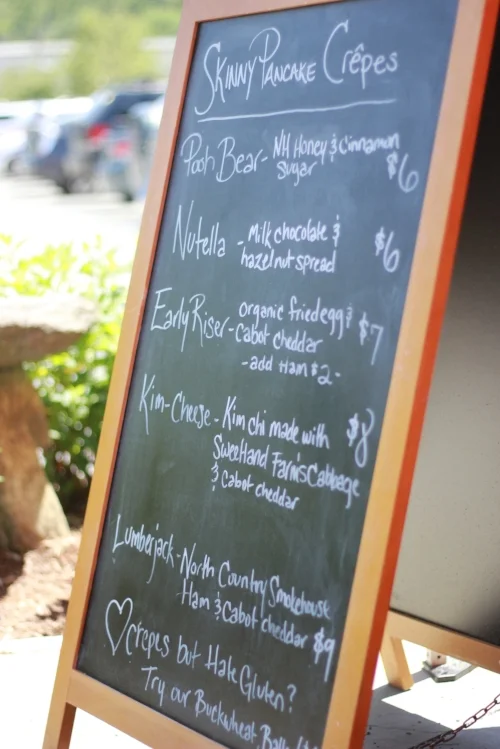 Skinny Pancake Crêpes
Pooh Bear - NH Honey & Cinnamon
Sugar $6
Nutella - Milk chocolate &
hazelnut spread $6
Early Riser - organic fried egg &
Cabot cheddar $7
- add Ham $2 -
Kim-Cheese - Kim chi made with
Sweetland Farm's Cabbage
& Cabot cheddar $8
Lumberjack - North Country Smokehouse
Ham & Cabot cheddar $9
♡ crepes but Hate Gluten?
Try our Buckwheat